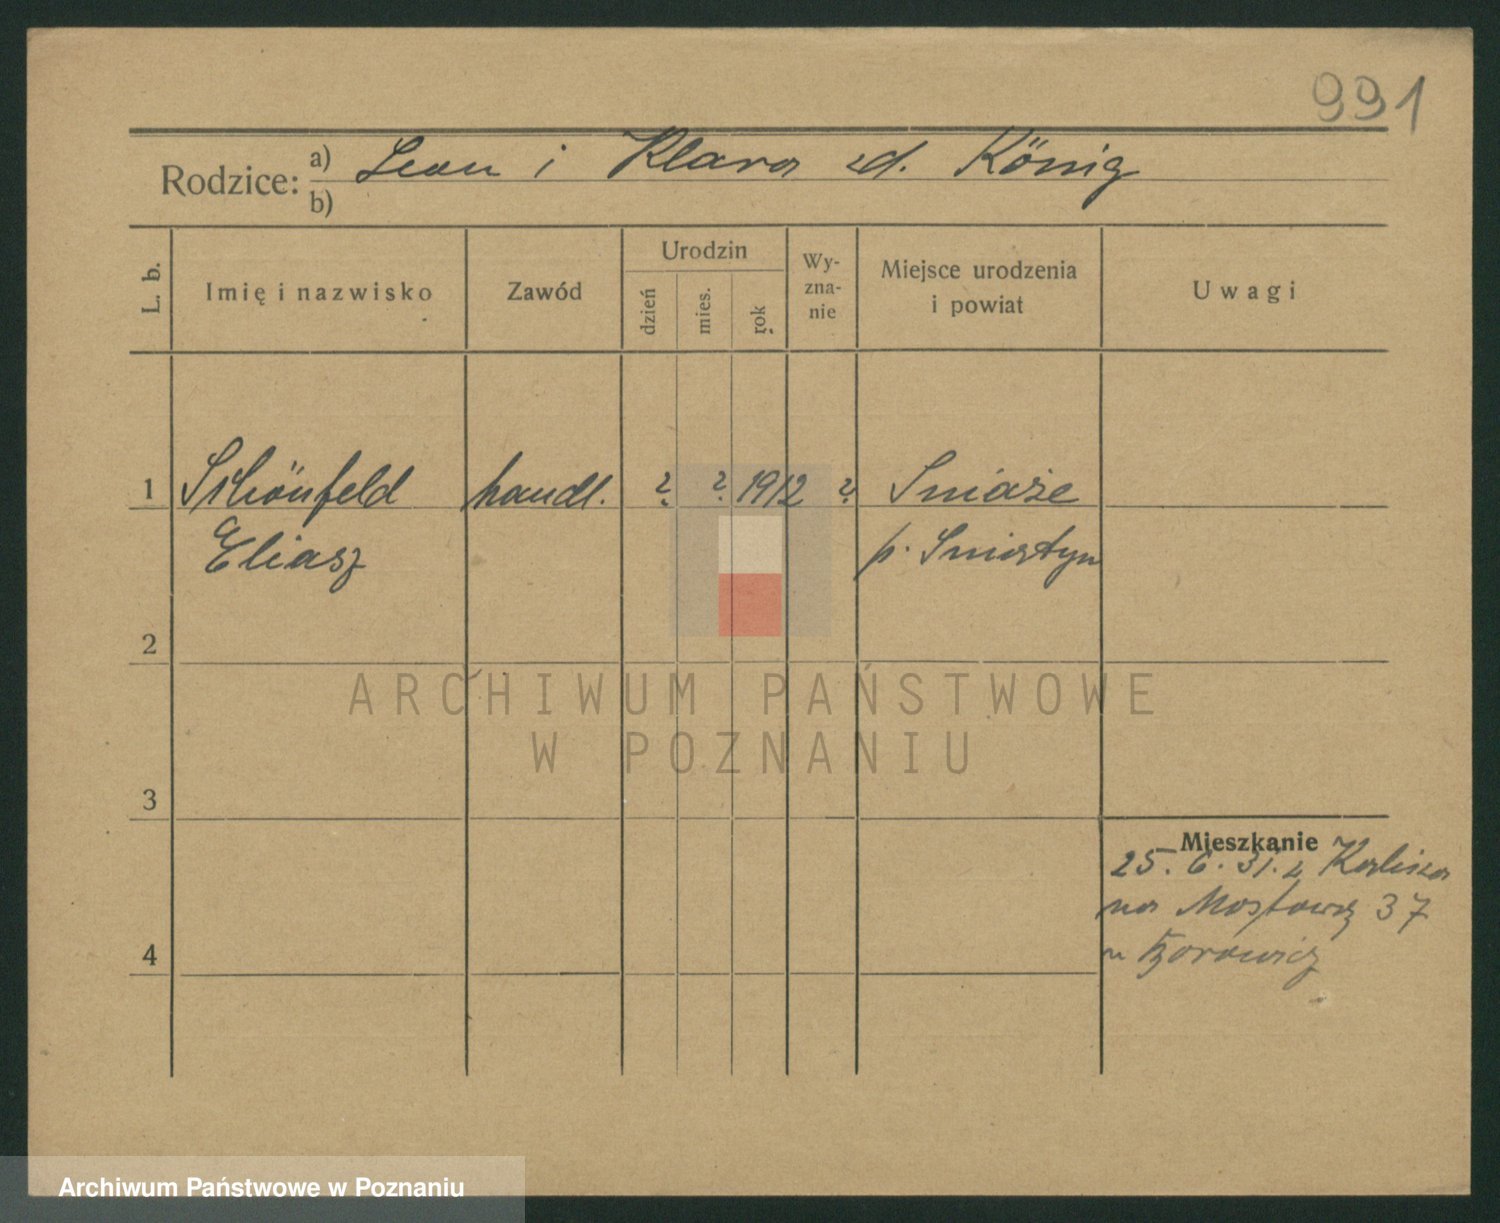 991
Rodzice: a) Leon i Klara zd. König
b)
L. b.
Imię i nazwisko
Zawód
Urodzin
dzień
mies.
rok
Wy-
zna-
nie
Miejsce urodzenia
i powiat
Uwagi
1 Schönfeld handl. ? ? 1912 ? Sniaże
Eliasz p. Sniatyn
2
ARCHIWUM PAŃSTWOWE
W POZNANIU
3
Mieszkanie
25. 6. 31. z Kalisza
na Mostową 37
4
Archiwum Państwowe w Poznaniu